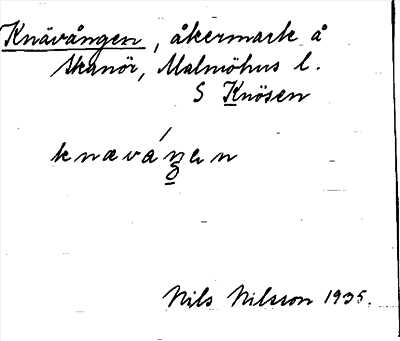 Knävången, åkermark å
Skanör, Malmöhus l.
S Knösen
knæváŋən
Nils Nilsson 1935.